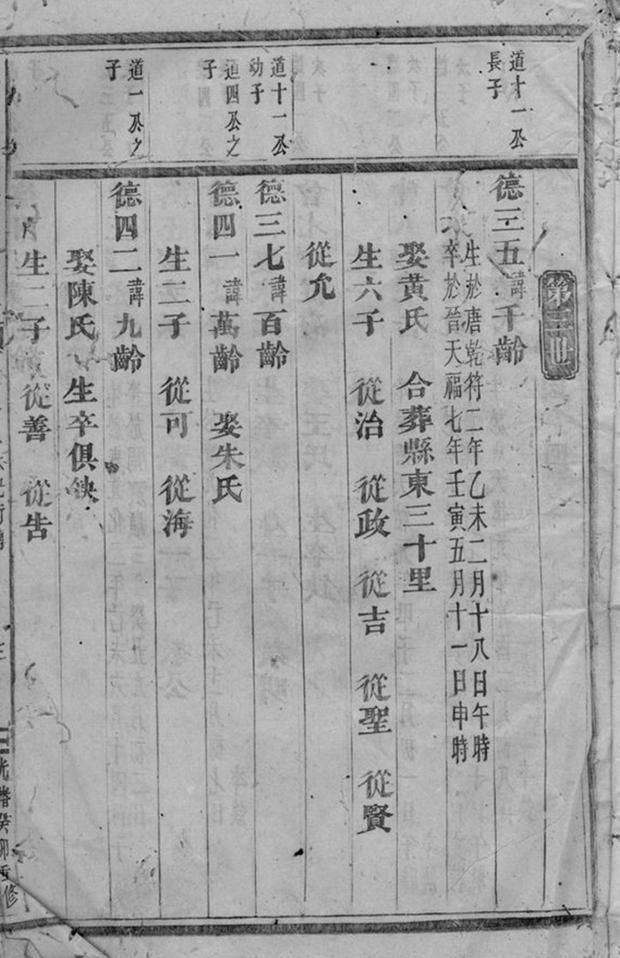 第三世
道十一公
長子
德三五諱千齡
生於唐乾符二年乙未二月十八日午時
卒於晉天福七年壬寅五月十一日申時
娶黄氏 合葬縣東三十里
生六子 從治 從政 從吉 從聖 從賢
從允
道十一公
幼子
德三七諱百齡
道四公之
子
德四一諱萬齡 娶朱氏
生二子 從可 從海
道一公之
子
德四二諱九齡
娶陳氏 生卒俱缺
生二子 從善 從吿
光緖癸卯重修